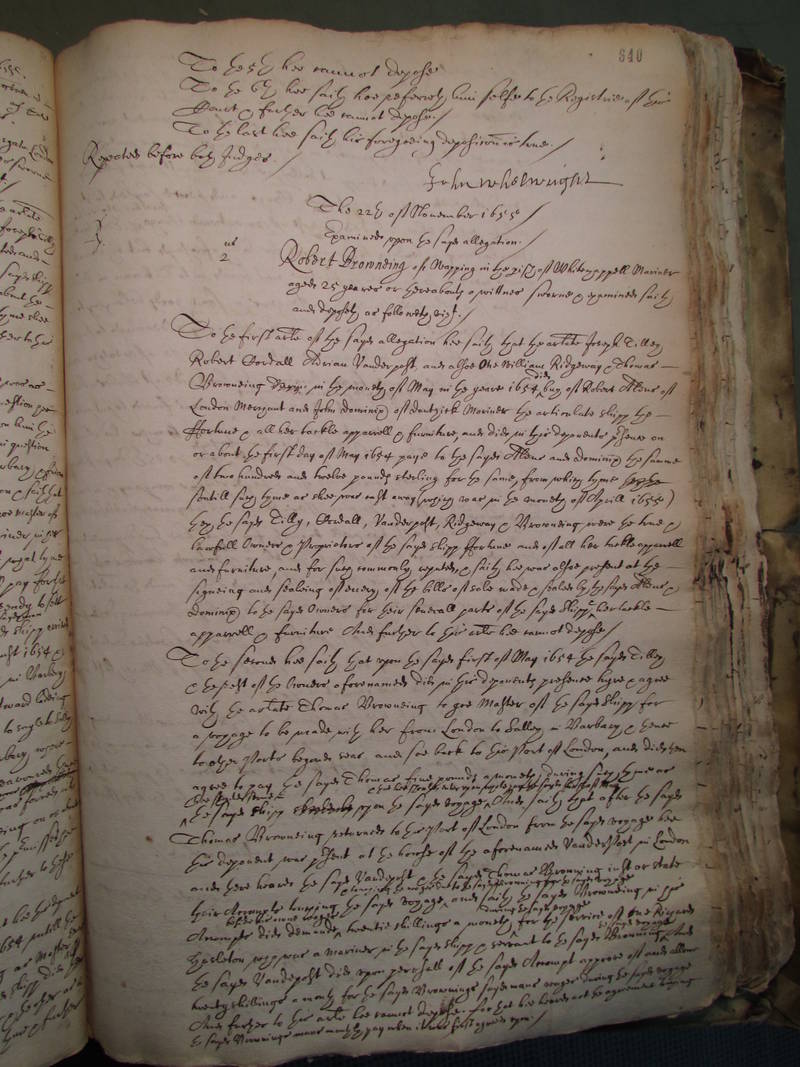 640
To the 5th hee cannot depose
To the 6th hee saith hee referreth himselfe to the Registrie of this
Court & further hee cannot depose./
To the last hee saith his foregoeing deposition is true./
Repeated before both Judges./
John Whelwright
The 22th of November 1655./
Examined upon the sayd allegation./
2
Robert Browneing of Wapping in the parish of Whitechappell Mariner
aged 25 yeares or thereabouts a wittnes sworne & examined saith
and deposeth as followeth, vizt./
To the first article of the sayd allegation hee saith that the articulate Joseph Tilley
Robert Cordall Adrian Vanderpost, and alsoe One William Ridgeway & Thomas
Browneing in the moneth of May in the yeare 1654 did buy of Robert Aldus of
London Merchant and John Dominix of dantzick Mariner the articulate shipp the
Ffortune & all her tackle apparrell & furniture, and did in this deponents presence on
or about the first day of May 1654 pay to the sayd Aldus and dominix the summe
of two hundred and twelve pounds sterling for the same, from which tyme
untill such tyme as shee was cast away (which was in the moneth of Aprill 1655)
they the sayd Tilly, Cordall, Vanderpost, Ridgeway & Browneing were the true &
lawfull Owners & Proprietors of the sayd shipp Ffortune and of all her tackle apparrell
and furniture, and for such commonly reputed, & saith hee was alsoe present at the
signeing and sealeing of every of the bills of sale made & sealed by the sayd Aldus &
dominix to the sayd Owners for their severall parts of the sayd shipp, her tackle
apparrell & furniture And further to this article hee cannot depose/
To the second hee saith that upon the sayd first of May 1654 the sayd Tilley
& the rest of the Owners aforenamed did in this deponents presence hyre & agree
with the articulate Thomas Browneing to goe Master of the sayd shipp for
a voyage to be made with her from London to Salley in Barbary & thence
to other Ports beyond seas and soe back to this Port of London, and did then
agree to pay the sayd Thomas five pounds a moneth dureing such tyme as
the sayd shipp upon the sayd voyage And saith that after the sayd
Thomas Browneing returned to this Port of London from the sayd voyage hee
this deponent was present at the house of the aforenamed Vanderpost in London
and there heard the sayd Vanderpost & the sayd Thomas Browning
their Accompts touching the sayd voyage, and saith the sayd Browneing in his
Accompts did demand twentie shillings a moneth for the service of One Richard
Harleton who was a mariner in the sayd shipp & servant to the sayd Browning, And
the sayd Vanderpost did upon perusall of the sayd Accompt approve of and allow
twenty shillings a month for the sayd Brownings sayd mans wages dureing the sayd voyage
And further to this article hee cannot depose. for that hee knowes not the agreement touching
the sayd Brownings mans